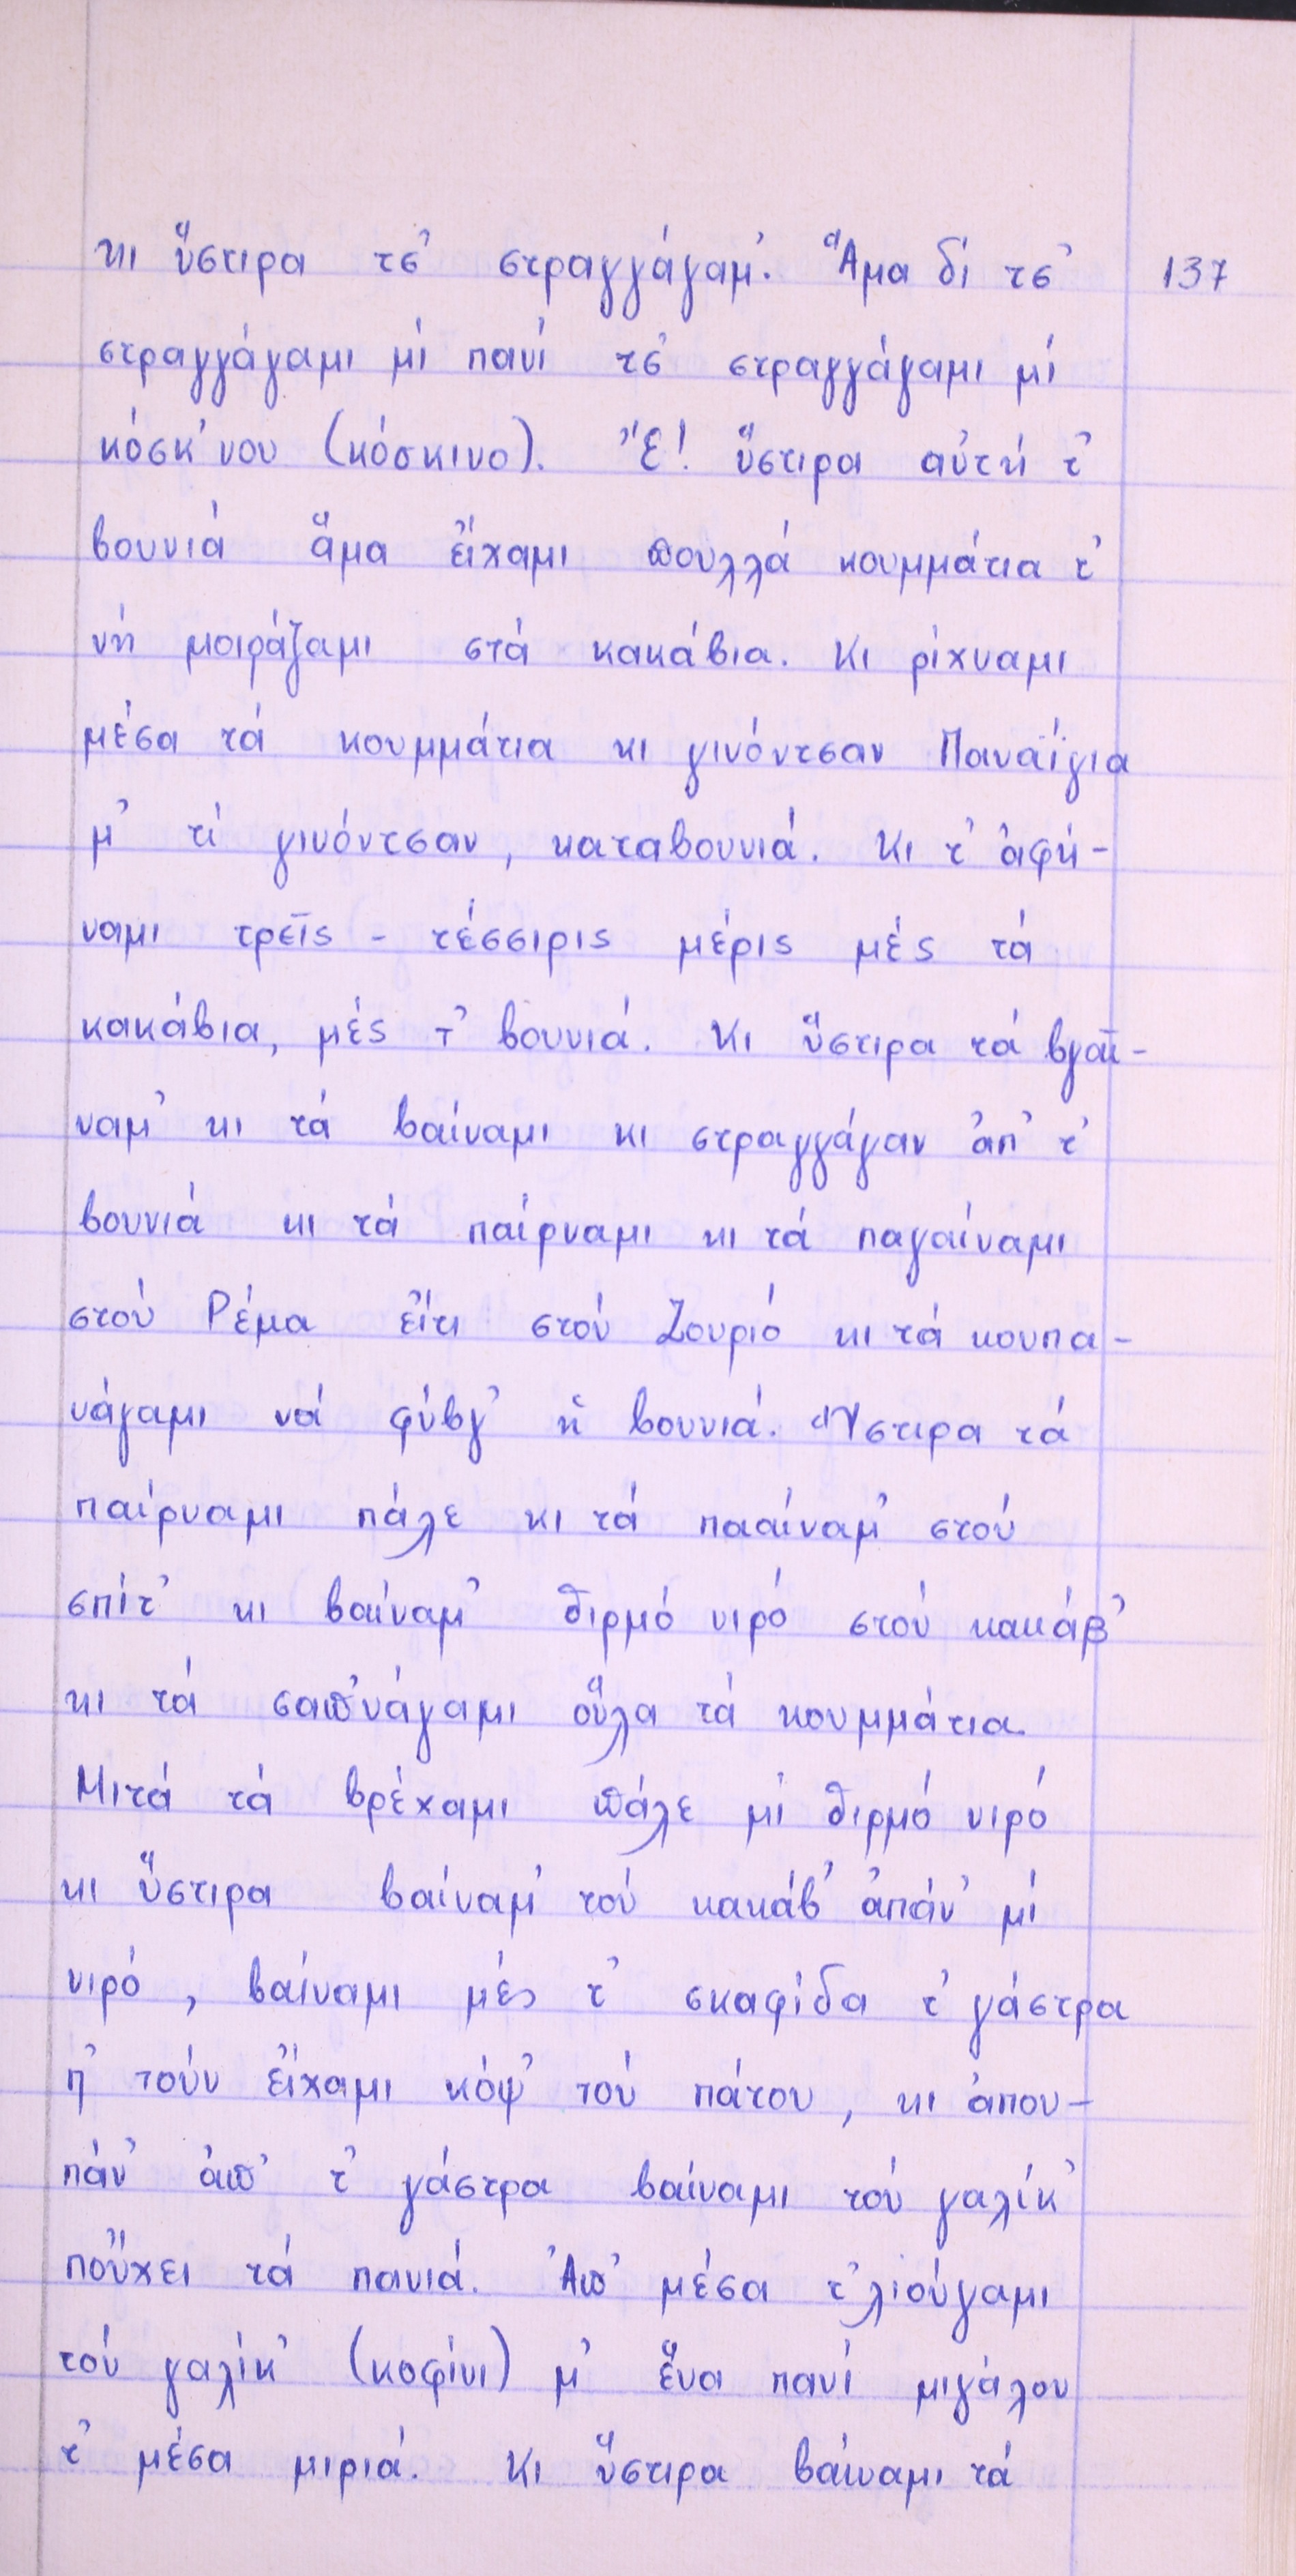 κι ὕστιρα τσ' στραγγάγαμ'. Ἅμα δί τσ' 137
στραγγάγαμι μί πανί τσ' στραγγάγαμι μί
κόσκ'νου (κόσκινο). Ἔ! ὕστιρα αὐτή τ'
βουνιά ἅμα εἴχαμι πουλλά κουμμάτια τ'
νή μοιράζαμι στά κακάβια. Κι ρίχναμι
μέσα τά κουμμάτια κι γινόντσαν Παναΐγια
μ' τί γινόντσαν, καταβουνιά. Κι τ' ἀφή-
ναμι τρεῖς - τέσσιρις μέρις μές τά
κακάβια, μές τ' βουνιά. Κι ὕστιρα τά βγαί-
ναμ' κι τά βαίναμι κι στραγγάγαν ἀπ' τ'
βουνιά κι τά παίρναμι κι τά παγαίναμι
στού Ρέμα εἴτι στού Ζουριό κι τά κουπα-
νάγαμι νά φύβγ' ἡ βουνιά. Ὕστιρα τά
παίρναμι πάλε κι τά πααίναμ' στού
σπίτ' κι βαίναμ' θιρμό νιρό στού κακάβ'
κι τά σαπ'νάγαμι οὕλα τά κουμμάτια.
Μιτά τά βρέχαμι πάλε μί θιρμό νιρό
κι ὕστιρα βαίναμ' τού κακάβ' ἀπάν' μί
νιρό, βαίναμι μές τ' σκαφίδα τ' γάστρα
π' τούν εἴχαμι κόψ' τού πάτου, κι ἀπου-
πάν' ἀπ' τ' γάστρα βαίναμι τού γαλίκ'
ποὔχει τά πανιά. Ἀπ' μέσα τ'λιούγαμι
τού γαλίκ' (κοφίνι) μ' ἕνα πανί μιγάλου
τ' μέσα μιριά. Κι ὕστιρα βαίναμι τά